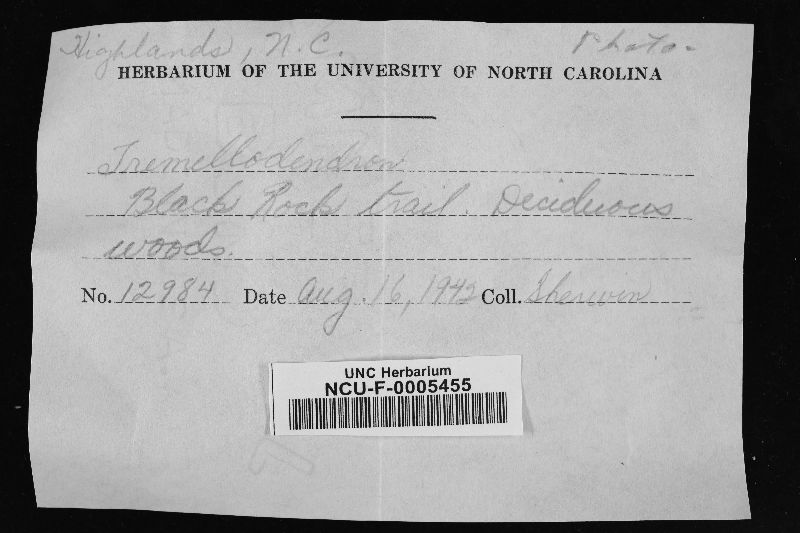 Highlands, N.C. Photo-
HERBARIUM OF THE UNIVERSITY OF NORTH CAROLINA
Tremellodendron
Black Rock trail. Deciduous
woods.
No. 12984 Date Aug. 16, 1942 Coll. Sherwin
UNC Herbarium
NCU-F-0005455